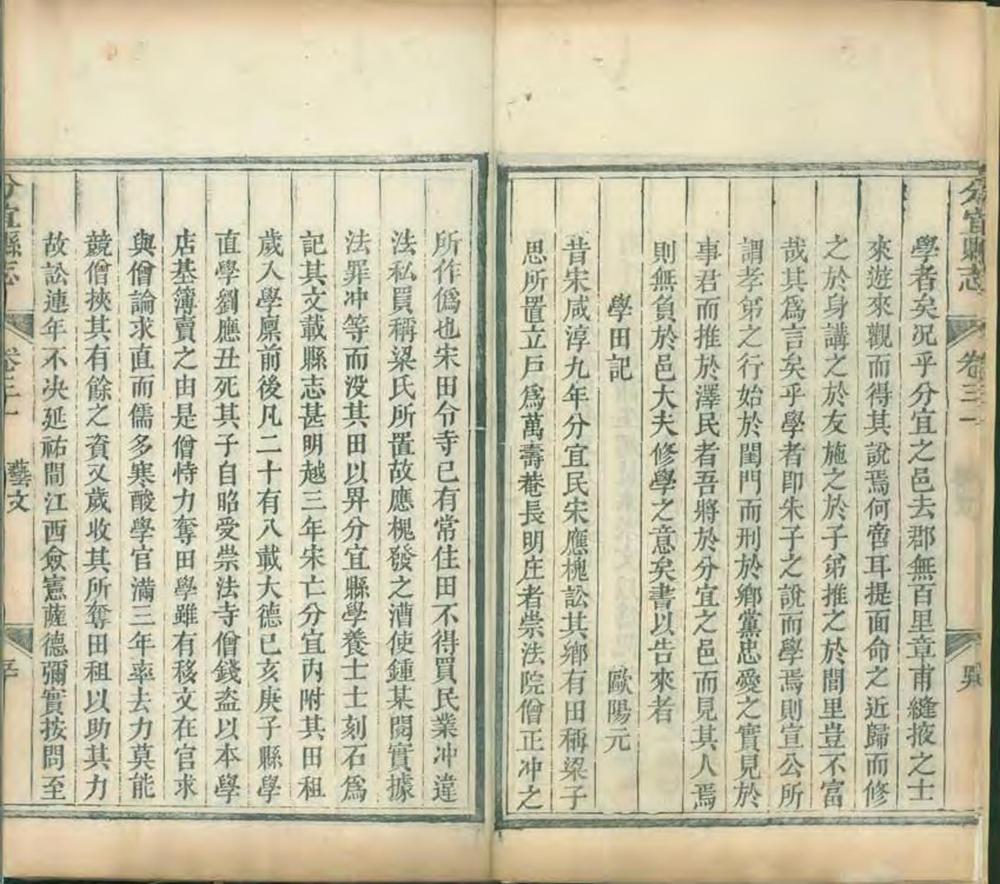 分宜縣志
卷三一
學者矣况乎分宜之邑去郡無百里章甫縫掖之士
來遊來觀而得其說焉何啻耳提面命之近歸而修
之於身講之於友施之於子弟推之於閭里豈不富
哉其爲言矣乎學者卽朱子之說而學焉則宣公所
謂孝弟之行始於閨門而刑於鄉黨忠愛之實見於
事君而推於澤民者吾將於分宜之邑而見其人焉
則無負於邑大夫修學之意矣書以告來者
學田記 歐陽元
昔宋咸淳九年分宜民宋應槐訟其鄉有田稱梁子
思所置立戶爲萬壽菴長明庄者崇法院僧正冲之
所作僞也宋田令寺已有常住田不得買民業冲違
法私買稱梁氏所置故應槐發之漕使鍾某閱實據
法罪冲等而没其田以畀分宜縣學養士士刻石爲
記其文載縣志甚明越三年宋亡分宜內附其田租
歲入學廪前後凡二十有八載大德已亥庚子縣學
直學劉應丑死其子自昭受崇法寺僧錢盗以本學
店基簿賣之由是僧恃力奪田學雖有移文在官求
與僧論求直而儒多寒酸學官滿三年率去力莫能
競僧挾其有餘之資又歲收其所奪田租以助其力
故訟連年不决延祐間江西僉憲薩德彌實按問至
分宜縣志
卷三一
藝文